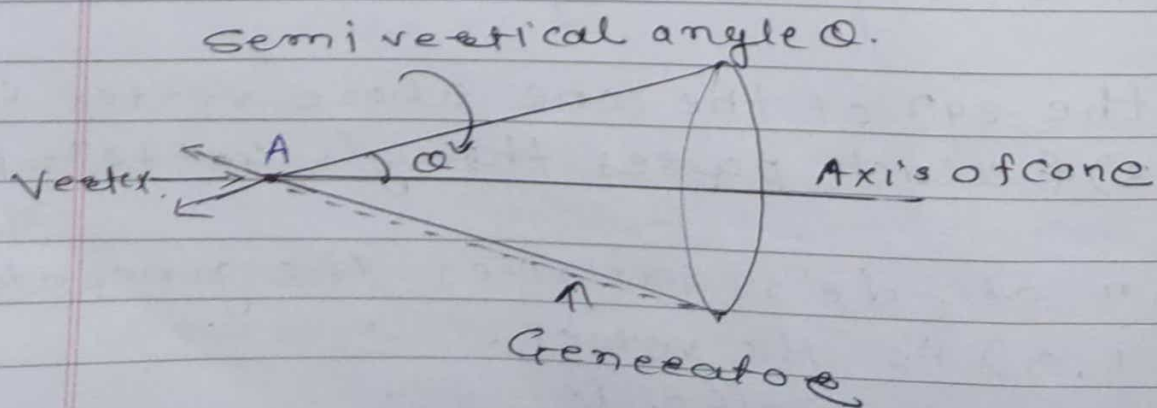 Semi vertical angle Q.
A
Q
Vertex
Axis of Cone
Generator